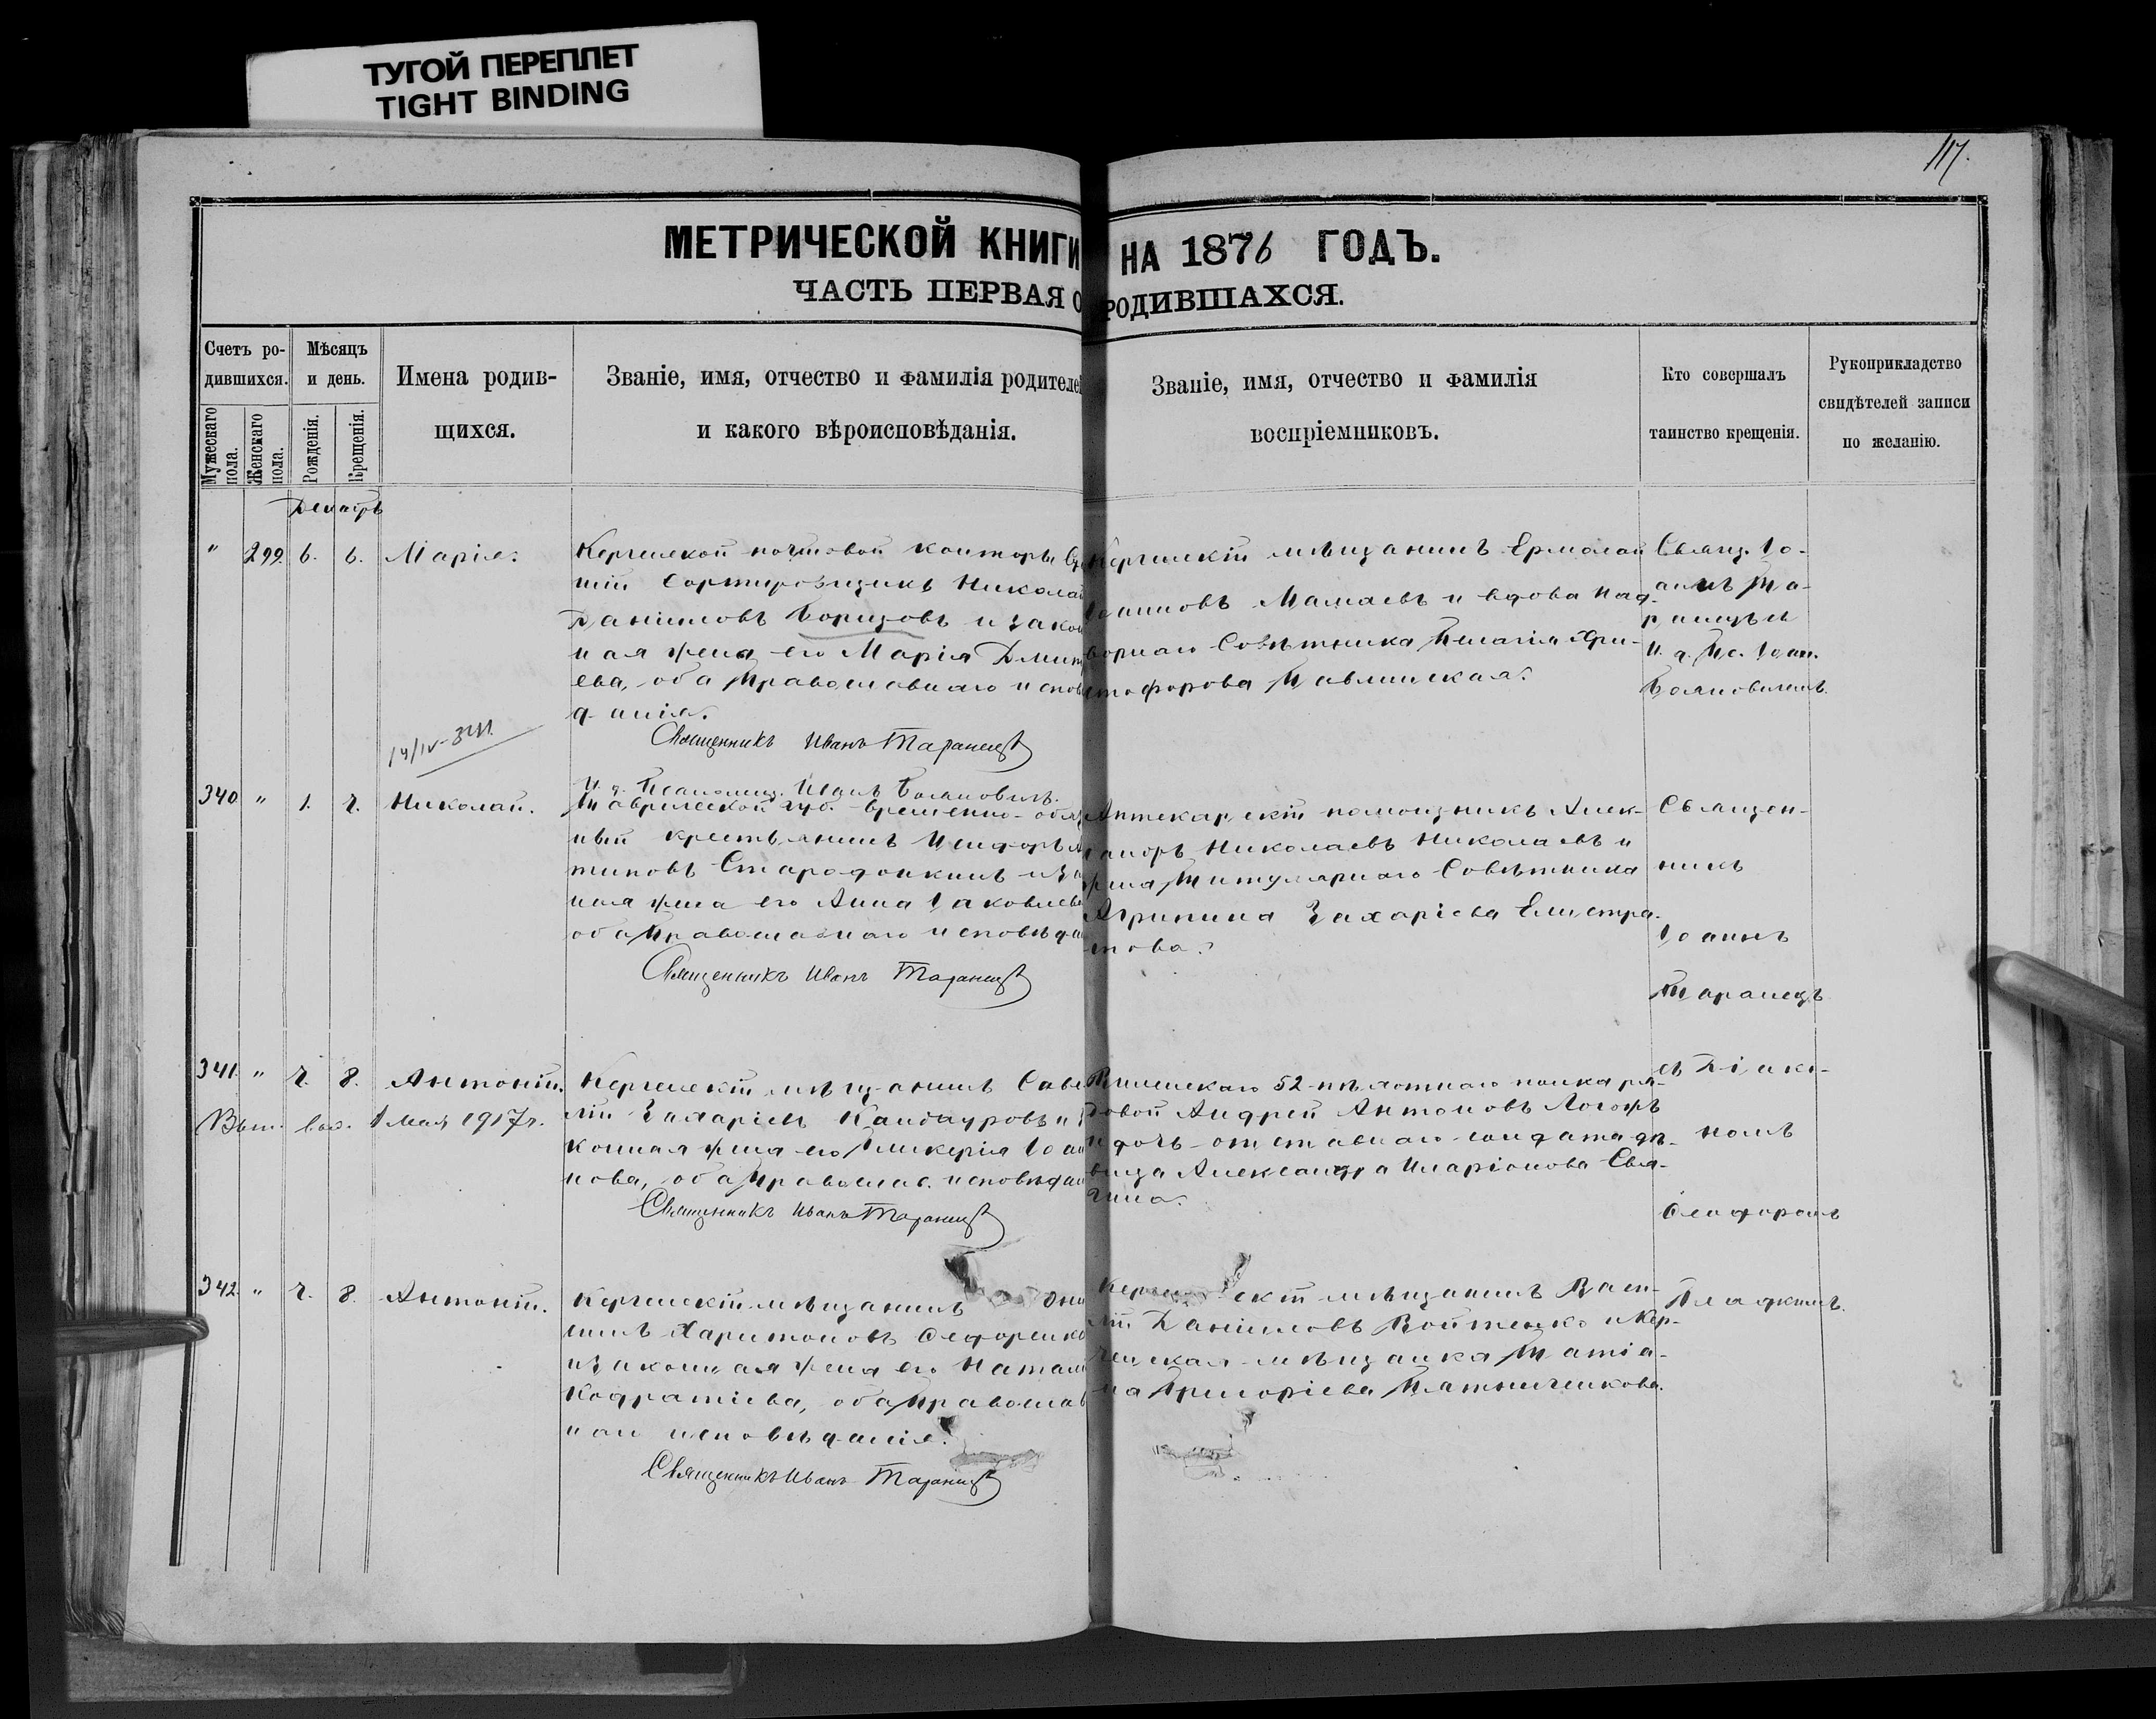 ТУГОЙ ПЕРЕПЛЕТ
TIGHT BINDING
117.
МЕТРИЧЕСКОЙ КНИГИ НА 1876 ГОДЪ.
ЧАСТЬ ПЕРВАЯ О РОДИВШАХСЯ.
Счетъ ро-
дившихся.
Мужескаго
пола.
Женскаго
пола.
Мѣсяцъ
и день.
Рожденія.
Крещенія.
Имена родив-
шихся.
Званіе, имя, отчество и фамилія родителе
и какого вѣроисповѣданія.
Званіе, имя, отчество и фамилія
воспріемниковъ.
Кто совершалъ
таинство крещенія.
Рукоприкладство
свидѣтелей записи
по желанію.
Декабрь
" 299. 6. 6. Марія.
Керченской почтовой конторы
шій Сортировщикъ Никола
Даніиловъ Борцовъ и закон
ная жена его Марія Дмит
ева, оба Православнаго испов
данія.
Священникъ Иванъ Таранецъ
И. д. Псаломщ. Иванъ Бояновичъ.
Керченскій мѣщанинъ Ермолай
Іоанновъ Мамаевъ и вдова Над-
ворнаго Совѣтника Пелагія Хри-
стофорова Павлинская.
Священ. Іо-
аннъ Та-
ранецъ
И. д. Пс. Іоан.
Бояновичемъ.
14/IV-
340 " 1. 7. Николай.
Таврической губ. временно-обяз
ный крестьянинъ
тиновъ Стародонкинъ и за
ная жена его Анна Іаковлева
оба Православнаго исповѣда
Священникъ Иванъ Таранецъ
Аптекарскій помощникъ Алек-
сандръ Николаевъ Николаевъ и
жена Титулярнаго Совѣтника
Агрипина Захаріева Елистра-
това.
Священ-
никъ
Іоаннъ
Таранецъ
341. " 7. 8. Антоній.
Вып. выд. 1 мая 1917 г.
Керченскій мѣщанинъ Саве
лій Захаріевъ Кандауровъ и з
конная жена его Гликерія Іоан
нова, оба Православ. исповѣдан
Священникъ Иванъ Таранецъ
Виленскаго 52-пѣхотнаго полка ря-
довой Андрей Антоновъ
и дочь отставнаго солдата дѣ-
вица Александра Иларіонова Свя-
гина.
съ Діако-
номъ
Ѳеодоромъ
342. " 7. 8. Антоній.
Керченскій мѣщанинъ
Харитоновъ Ѳедоренко
и законная жена его Натал
Кодратіева, оба Православ
наго исповѣданія.
Священникъ Иванъ Таранецъ
Керченскій мѣщанинъ Васи-
лій Даніиловъ Войтенко и Кер-
ченская мѣщанка Татіа-
на Григоріева Пятниченкова.